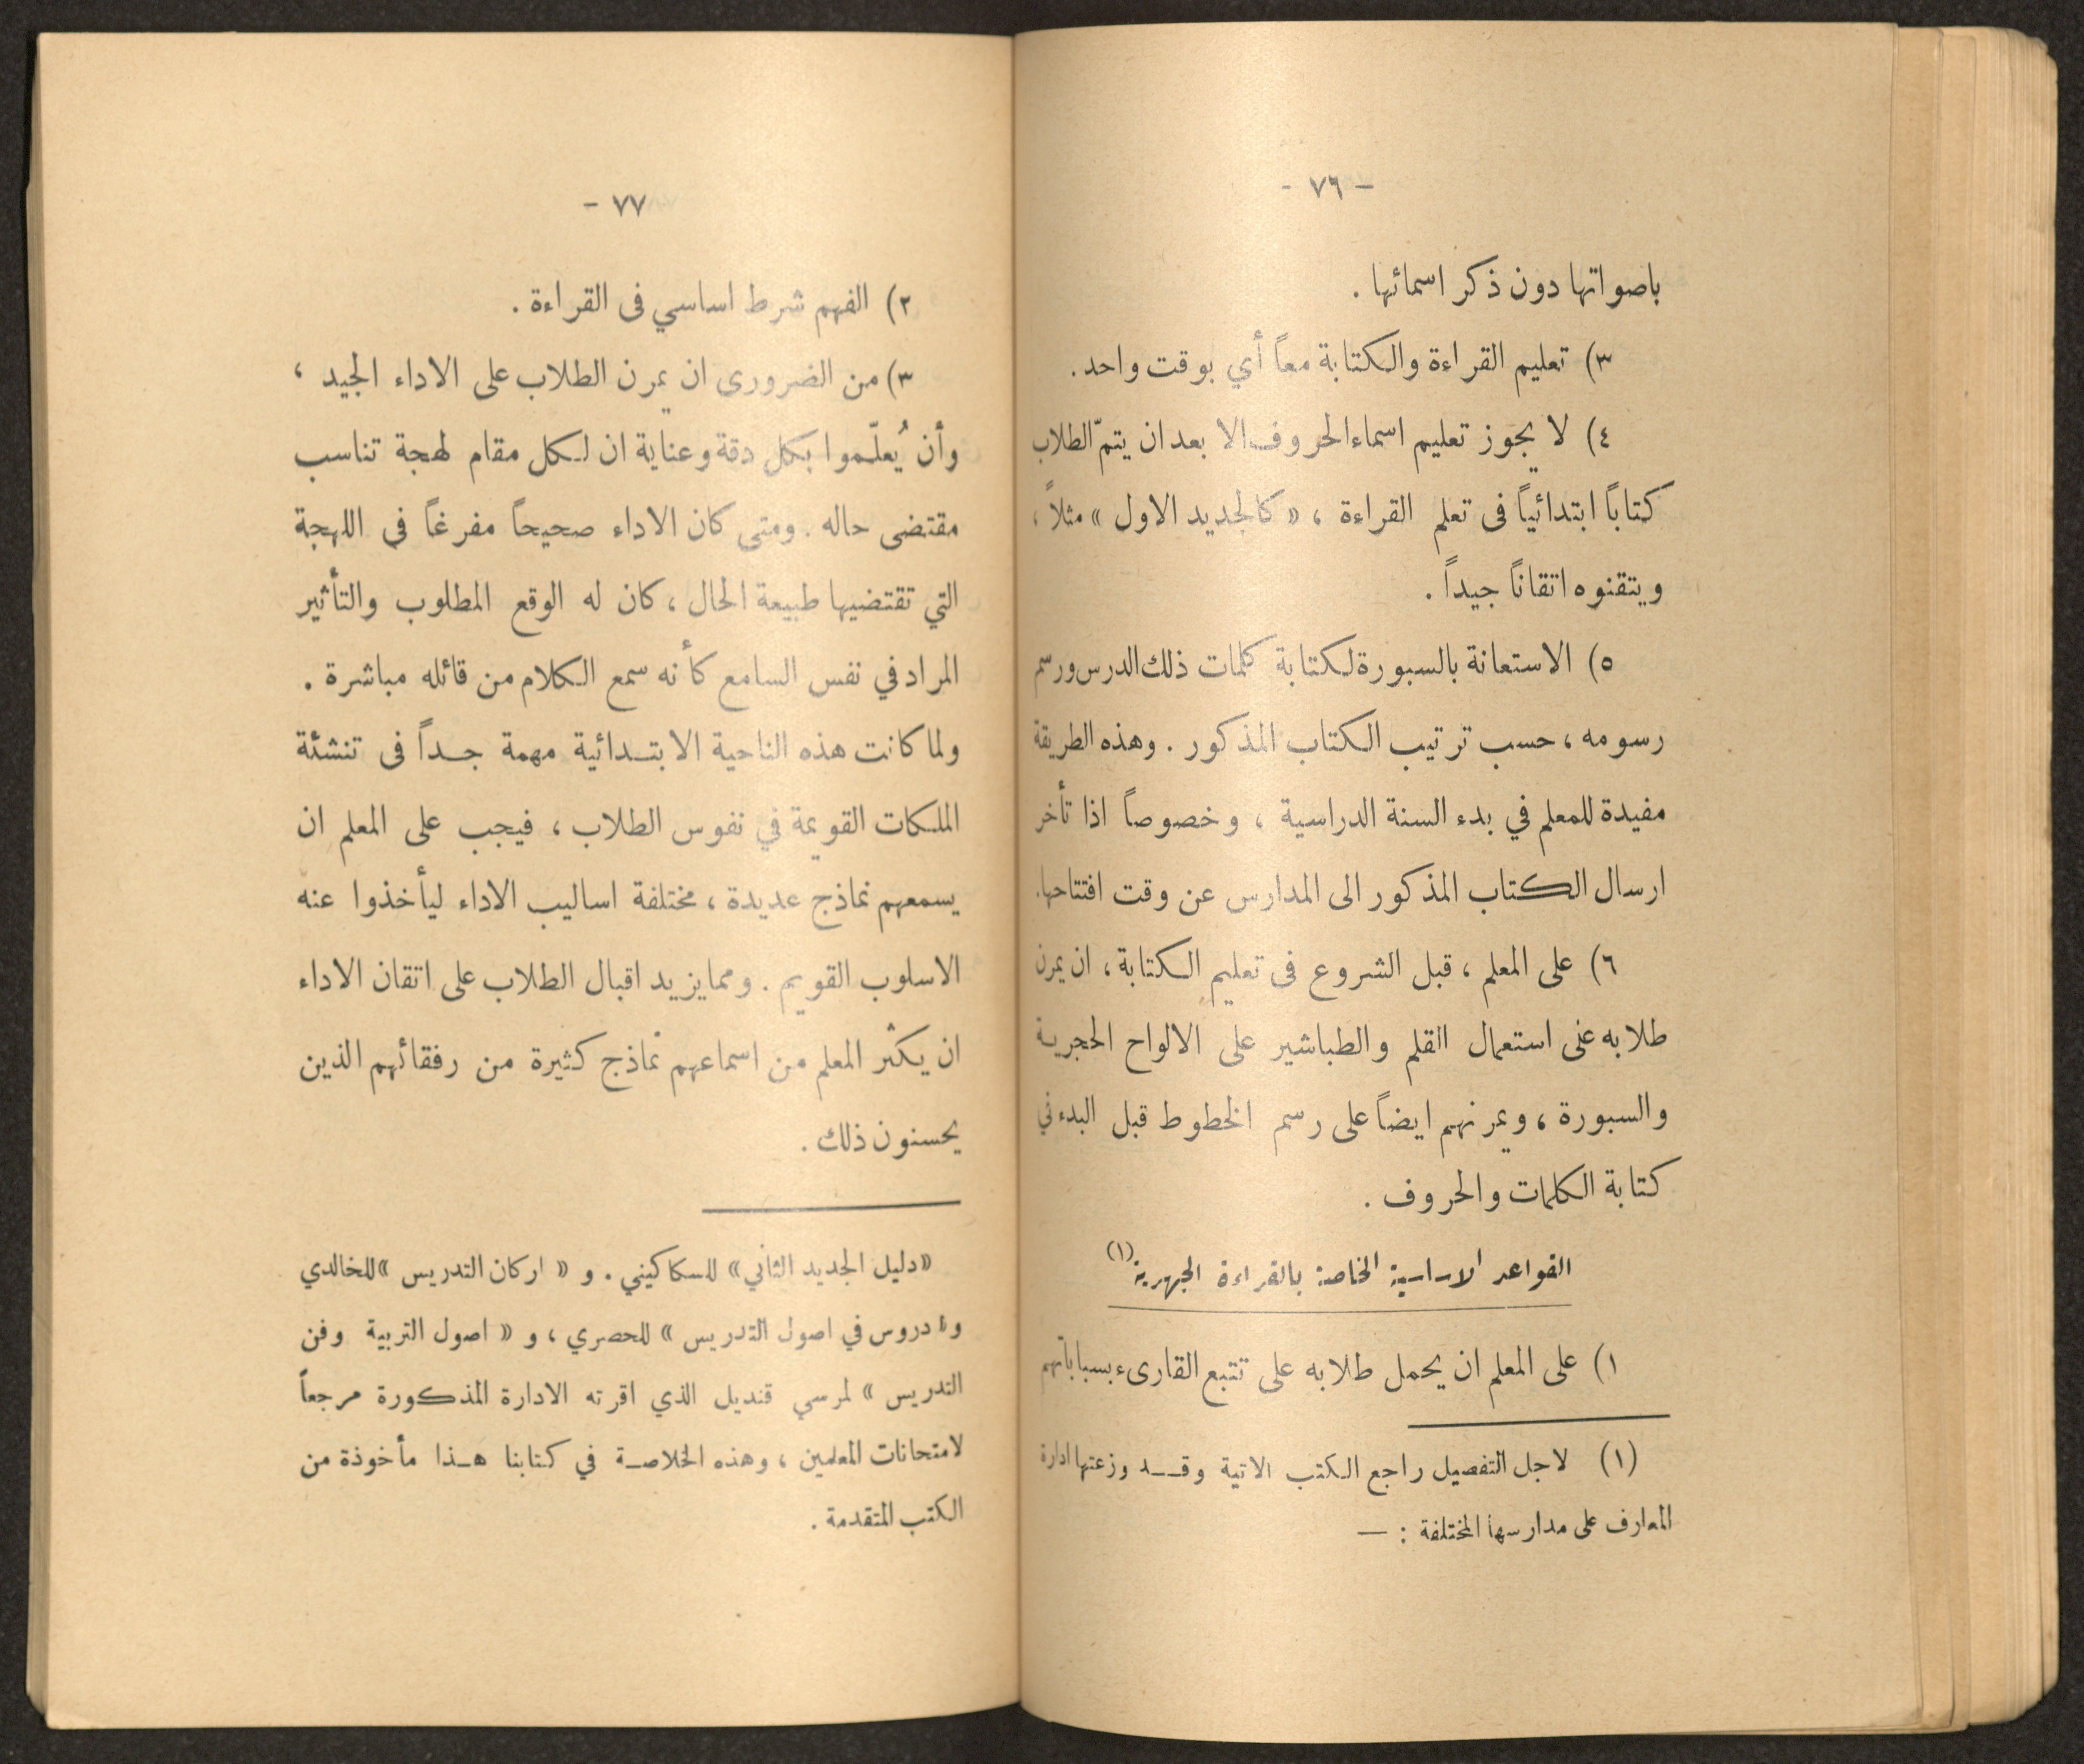 — ٧٦ -
باصواتها دون ذكر اسمائها .
٣) تعليم القراءة والكتابة معاً أي بوقت واحد .
٤) لا يجوز تعليم اسماء الحروف الا بعد ان يتمّ الطلاب
كتاباً ابتدائياً فى تعلم القراءة ، « كالجديد الاول » مثلاً ،
ويتقنوه اتقاناً جيداً .
٥) الاستعانة بالسبورة لكتابة كلمات ذلك الدرس ورسم
رسومه ، حسب ترتيب الكتاب المذكور . وهذه الطريقة
مفيدة للمعلم في بدء السنة الدراسية ، وخصوصاً اذا تأخر
ارسال الكتاب المذكور الى المدارس عن وقت افتتاحها.
٦) على المعلم ، قبل الشروع فى تعليم الكتابة ، ان يمرن
طلابه على استعمال القلم والطباشير على الالواح الحجرية
والسبورة ، ويمرنهم ايضاً على رسم الخطوط قبل البدء في
كتابة الكلمات والحروف .
القواعد الاساسية الخاصة بالقراءة الجهرية (١)
١) على المعلم ان يحمل طلابه على تتبع القارىء بسباباتهم
(١) لاجل التفصيل راجع الكتب الاتية وقـد وزعتها ادارة
المعارف على مدارسها المختلفة : —
٧٧ -
٢) الفهم شرط اساسي فى القراءة .
٣) من الضرورى ان يمرن الطلاب على الاداء الجيد ،
وأن يُعلّموا بكل دقة وعناية ان لكل مقام لهجة تناسب
مقتضى حاله . ومتى كان الاداء صحيحاً مفرغاً في اللهجة
التي تقتضيها طبيعة الحال ، كان له الوقع المطلوب والتأثير
المراد في نفس السامع كأنه سمع الكلام من قائله مباشرة .
ولما كانت هذه الناحية الابتـدائية مهمة جـداً فى تنشئة
الملكات القويمة في نفوس الطلاب ، فيجب على المعلم ان
يسمعهم نماذج عديدة ، مختلفة اساليب الاداء ليأخذوا عنه
الاسلوب القويم . ومما يزيد اقبال الطلاب على اتقان الاداء
ان يكثر المعلم من اسماعهم نماذج كثيرة من رفقائهم الذين
يحسنون ذلك .
«دليل الجديد الثاني» للسكاكيني . و « اركان التدريس »للخالدي
و« دروس في اصول التدريس » للحصري ، و « اصول التربية وفن
التدريس » لمرسي قنديل الذي اقرته الادارة المذكورة مرجعاً
لامتحانات المعلمين ، وهذه الخلاصـة في كتابنا هـذا مأخوذة من
الكتب المتقدمة .